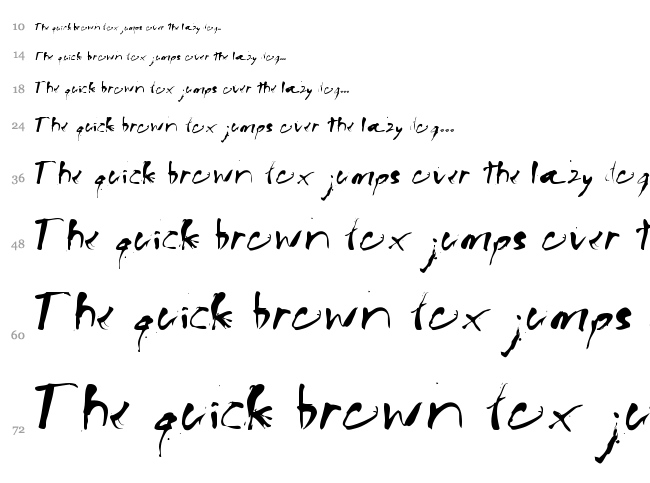 10 The quick brown fox jumps over the lazy dog...
14 The quick brown fox jumps over the lazy dog...
18 The quick brown fox jumps over the lazy dog...
24 The quick brown fox jumps over the lazy dog...
36 The quick brown fox jumps over the lazy dog
48 The quick brown fox jumps over t
60 The quick brown fox jumps
72 The quick brown fox ju